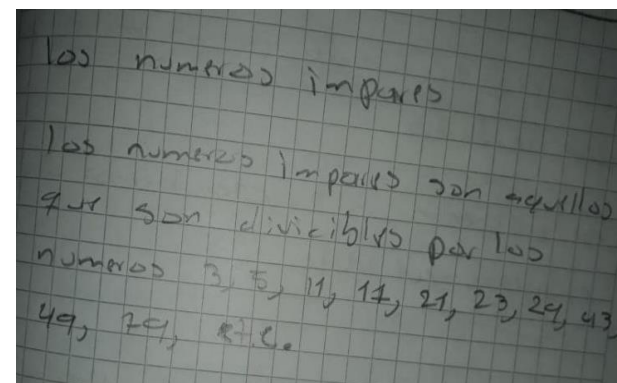 los numeros impares
los numeros impares son aquellos
que son divicibles por los
numeros 3, 5, 11, 17, 21, 23, 29, 43,
49, 79, etc.